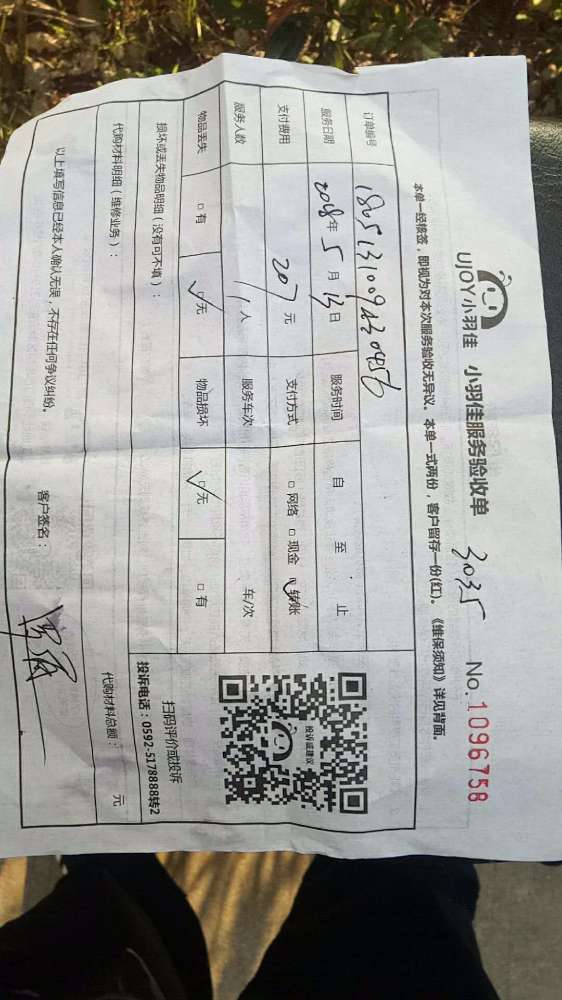 UJOY 小羽佳 小羽佳服务验收单 3035 No.1096758
本单一经核签，即视为对本次服务验收无异议。本单一式两份，客户留存一份(红)。《维保须知》详见背面。
订单编号
服务日期 2018年 5 月 13 日 服务时间 自 至 止
支付费用 207 元 支付方式 □ 网络 □ 现金 ☑ 转账
服务人数 1 人 服务车次 车/次
物品丢失 □ 有 ☑ 无 物品损坏 ☑ 无 □ 有
损坏或丢失物品明细（没有可不填）：
投诉或建议
扫码评价或投诉
投诉电话：0592-5178888转2
代购材料明细（维修业务）： 代购材料总额： 元
以上填写信息已经本人确认无误，不存在任何争议纠纷。 客户签名：